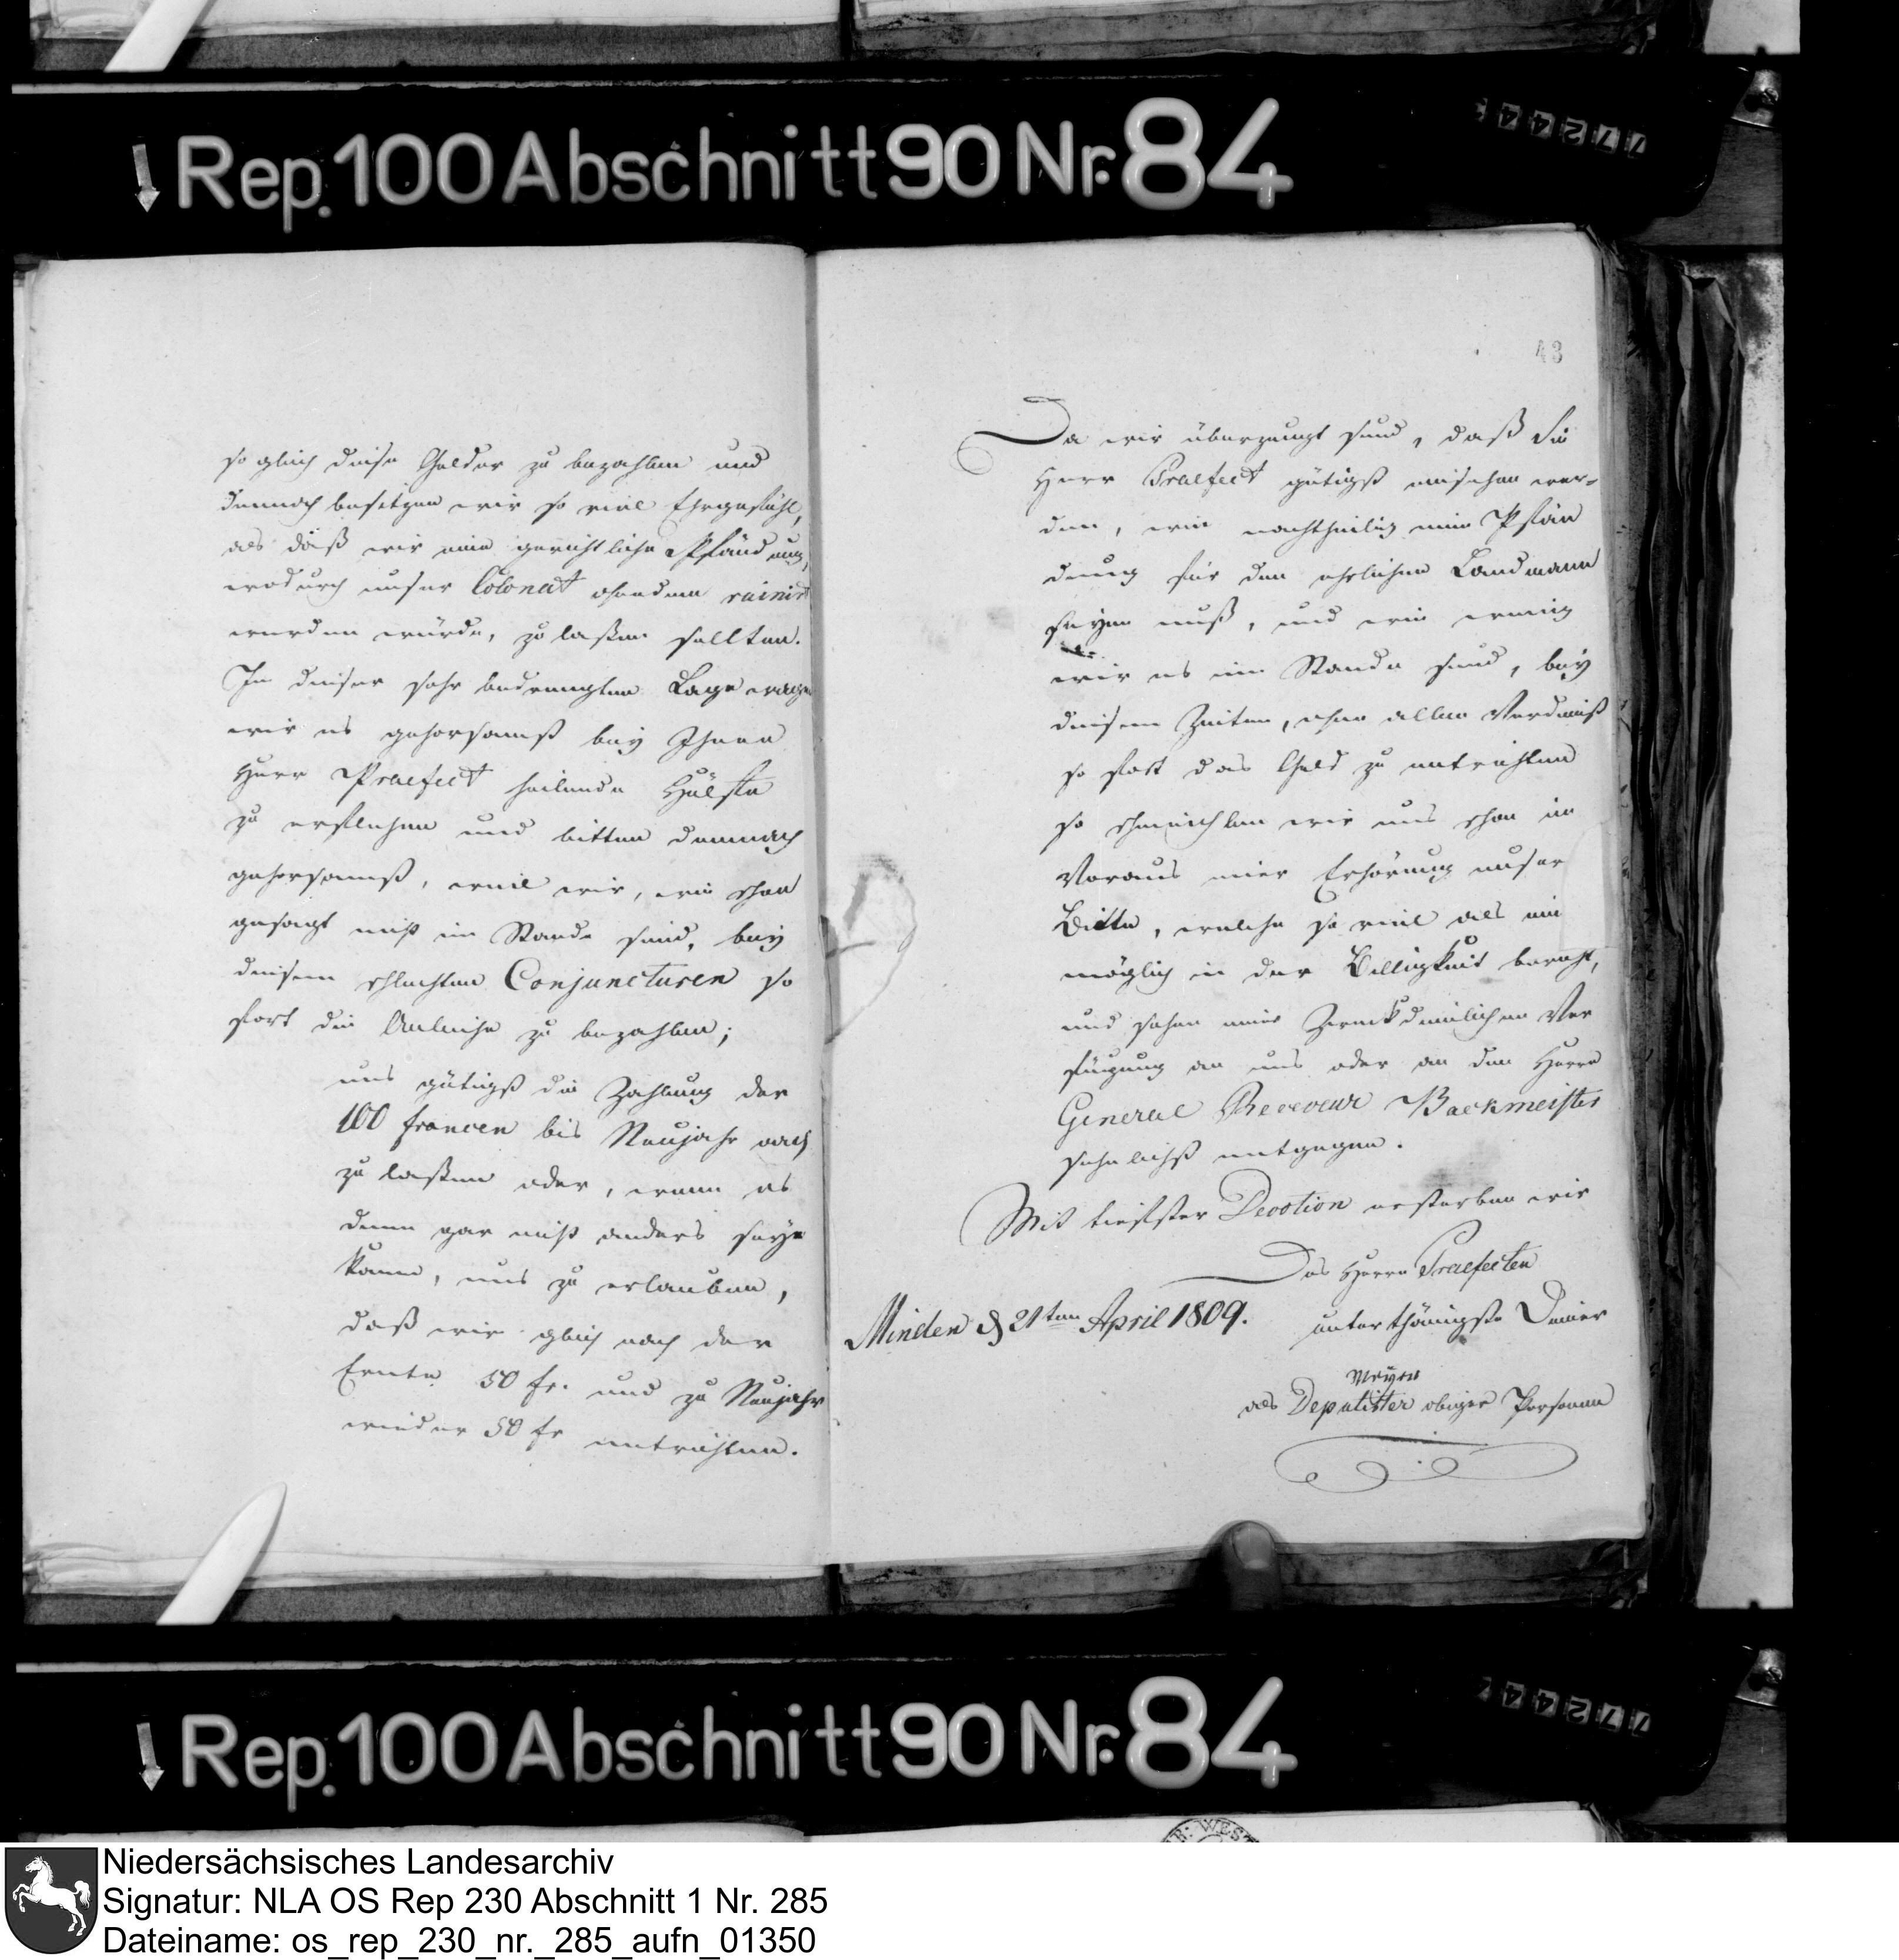 Rep. 100 Abschnitt 90 Nr. 84
77244
so gleich diese Gelder zu bezahlen und
dennoch besitzen wir so viel Ehrgefühl,
als daß wir eine gerichtliche Pfändung,
wodurch unser Colonat ohnedem ruinirt
werden würde, zu laßen sollten.
In dieser sehr bedrengten Lage wagen
wir es gehorsamst bey Ihnen
Herr Praefect heilende Hülfe
zu erflehen und bitten demnach
gehorsamst, weil wir, wie schon
gesagt nicht im Stande sind, bey
diesen schlechten Conjuncturen so
fort die Anleihe zu bezahlen;
uns gütigst die Zahlung der
100 francen bis Neujahr nach
zu laßen oder, wenn es
denn gar nicht anders seyn
kann, uns zu erlauben,
daß wir gleich nach der
Ernte 50 fr. und zu Neujahr
wieder 50 fr entrichten.
43
Da wir überzeugt sind, daß Sie
Herr Praefect gütigst einsehen wer-
den, wie nachtheilig eine Pfän
dung für den ehrlichen Landmann
seyn muß, und wie wenig
wir es im Stande sind, bey
diesen Zeiten, ohne allen Verdienst
so fort das Geld zu entrichten
so schmeichlen wir uns schon im
Voraus einer Erhörung unser
Bitte, welche so viel als nie
möglich in der Billigkeit beruht,
und sehen einer Zweckdienlichen Ver
fügung an uns oder an den Herrn
General Receveur Backmeister
sehnlichst entgegen.
Mit tiefster Devotion ersterben wir
Des Herrn Praefecten
Minden d 21ten April 1809.
unterthänigste Diener
Meyer
als Deputirter obiger Personen
Rep. 100 Abschnitt 90 Nr. 84
77244
Niedersächsisches Landesarchiv
Signatur: NLA OS Rep 230 Abschnitt 1 Nr. 285
Dateiname: os_rep_230_nr._285_aufn_01350